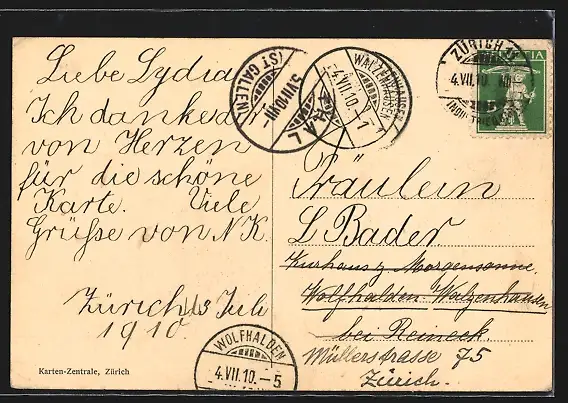 Liebe Lydia
Ich danke
von Herzen
für die schöne
Karte. Viele
Grüsse von N K.
Zürich 3 Juli
1910
Karten-Zentrale, Zürich
(ST. GALLEN)
5.VII.10.
WALZENHAUSEN
4.VII.10.-7
WALZENHAUSEN
ZÜRICH
4.VII.10.
INDUSTRIE
HELVETIA
5
Fräulein
L Bader
Kurhaus z. Morgensonne.
Wolfhalden-Walzenhausen
bei Reineck
Müllerstrasse 75
Zürich.
WOLFHALDEN
4.VII.10.-5